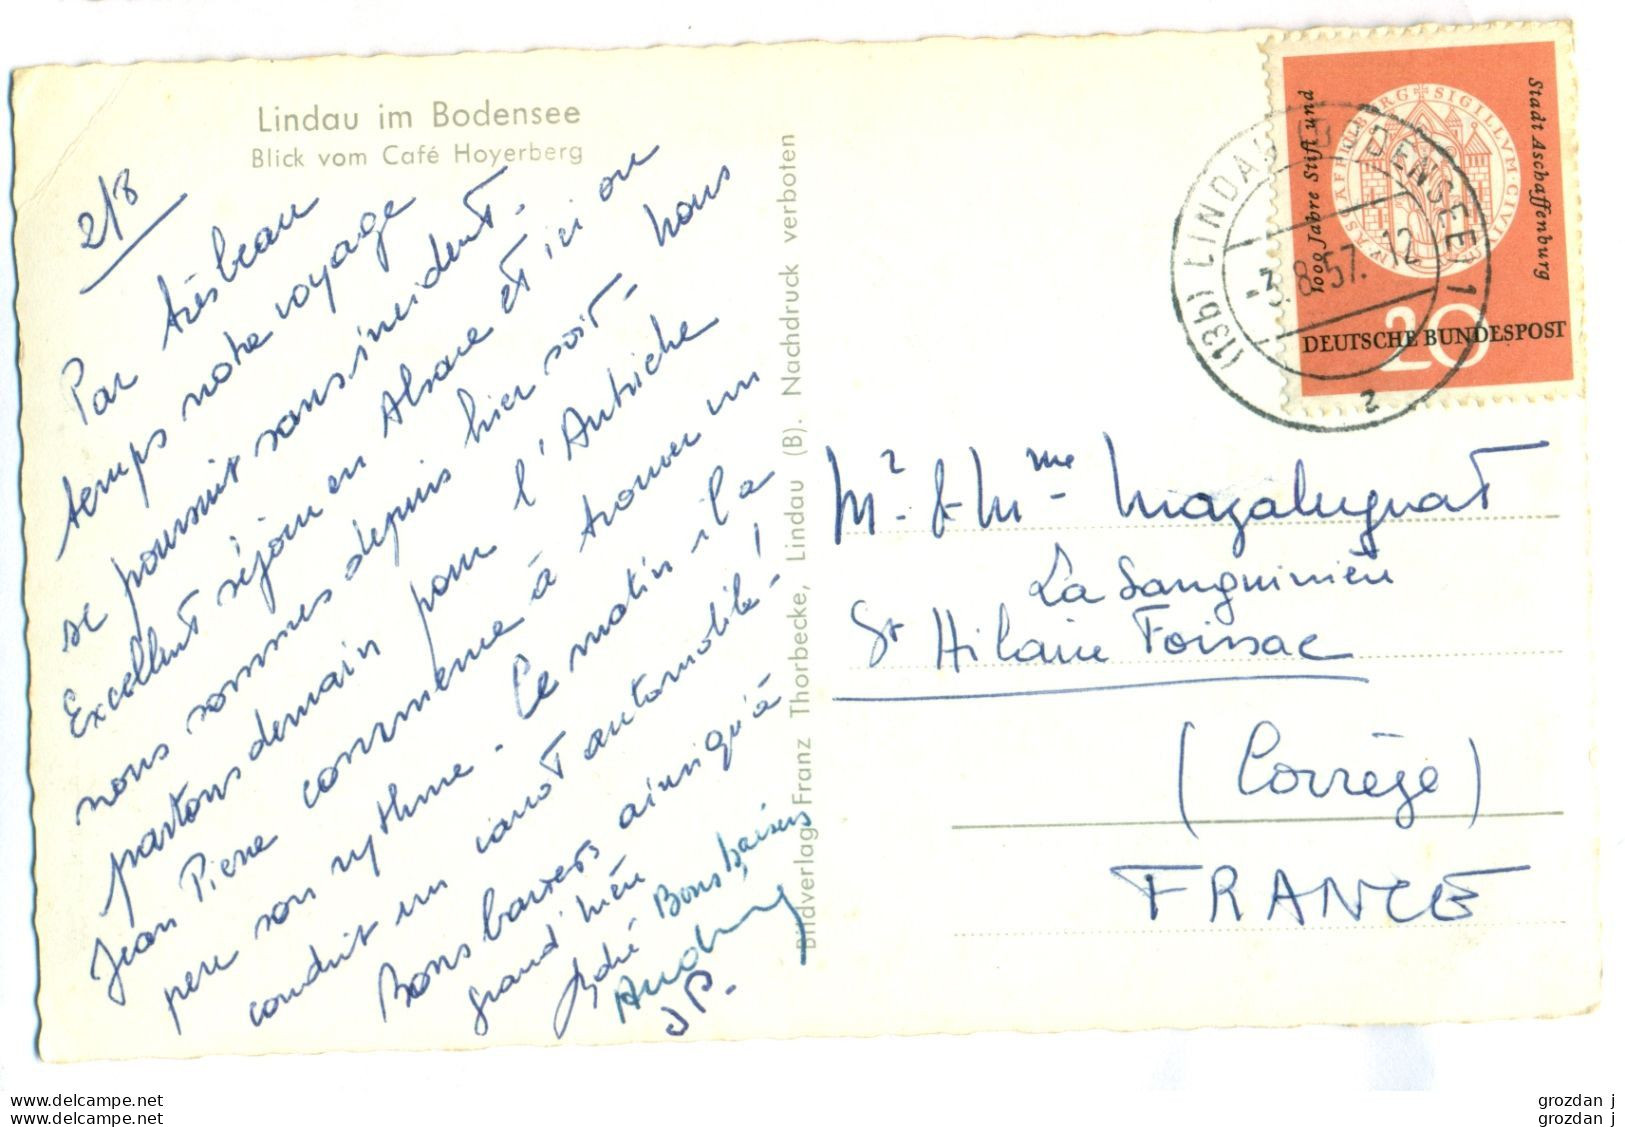 Lindau im Bodensee
Blick vom Café Hoyerberg
2/8
Par très beau
temps notre voyage
se poursuit sans incident.
Excellent séjour en Alsace et ici où
nous sommes depuis hier soir - nous
partons demain pour l'Autriche
Jean Pierre commence à trouver un
peu son rythme - Ce matin il a
conduit un canot automobile !
Bons baisers ainsi qu'à
grand'mère
André Bons baisers
Andrey
JP.
Bildverlag Franz Thorbecke, Lindau (B). Nachdruck verboten
1000 Jahre Stift und
Stadt Aschaffenburg
SIGILLVM·CIVI
20
DEUTSCHE BUNDESPOST
(13b) LINDAU (BODENSEE) 1
-3.8.57.12
z
Mr & Mme Mazaleygnat
La Sanguinière
St Hilaire Foissac
(Corrèze)
FRANCE
grozdan j
grozdan j
www.delcampe.net
www.delcampe.net